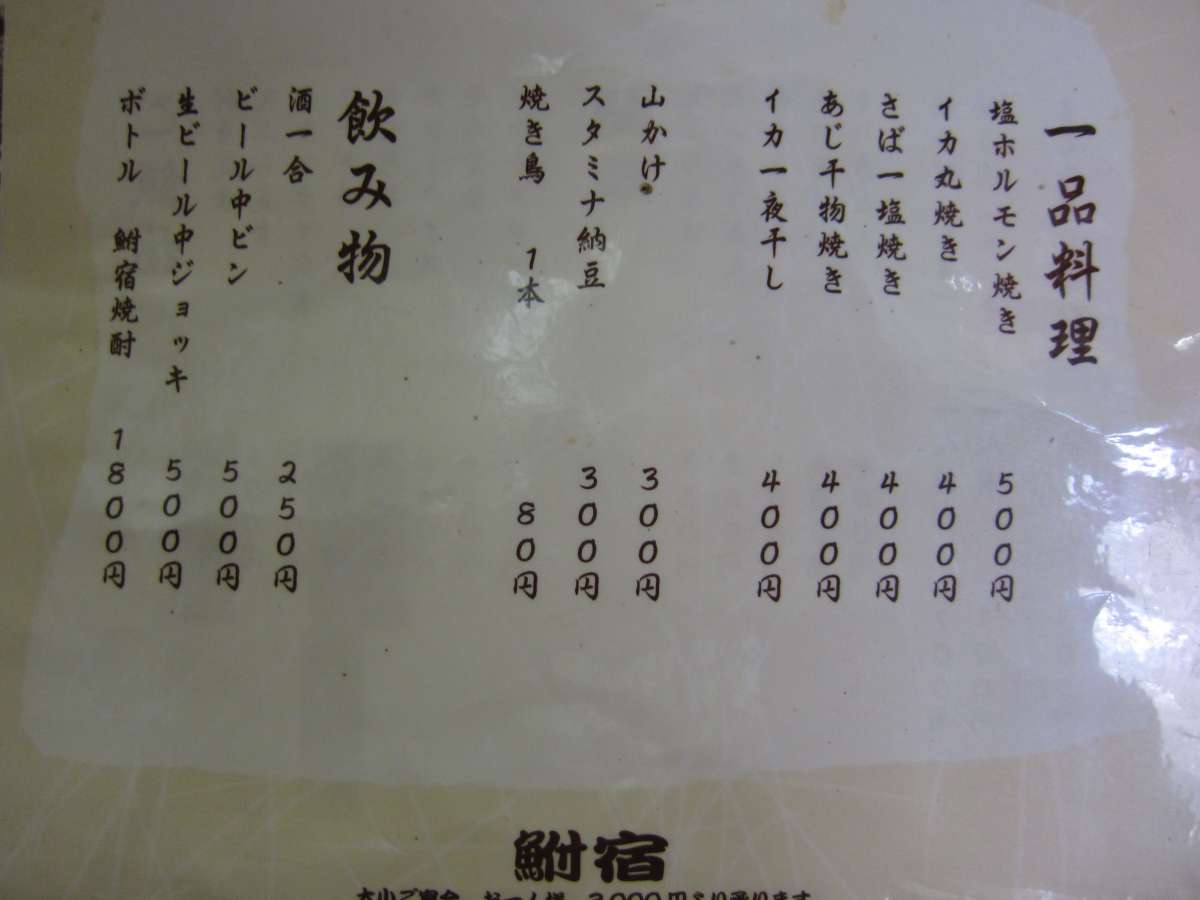 一品料理
塩ホルモン焼き 500円
イカ丸焼き 400円
さば一塩焼き 400円
あじ干物焼き 400円
イカ一夜干し 400円
山かけ 300円
スタミナ納豆 300円
焼き鳥 1本 80円
飲み物
酒一合 250円
ビール中ビン 500円
生ビール中ジョッキ 500円
ボトル 鮒宿焼酎 1800円
鮒宿
大小ご宴会 お一人様 3,000円より承ります